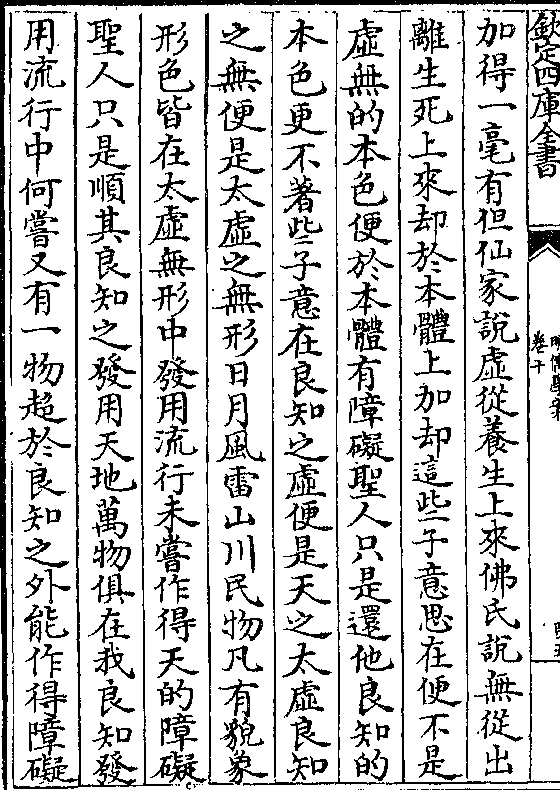 欽定四庫全書
卷十
加得一毫有但仙家說虛從養生上來佛氏說無從出
離生死上來却於本體上加却這些子意思在便不是
虛無的本色便於本體有障礙聖人只是還他良知的
本色更不著些子意在良知之虛便是天之太虛良知
之無便是太虛之無形日月風雷山川民物凡有貌象
形色皆在太虛無形中發用流行未嘗作得天的障礙
聖人只是順其良知之發用天地萬物俱在我良知發
用流行中何嘗又有一物超於良知之外能作得障礙